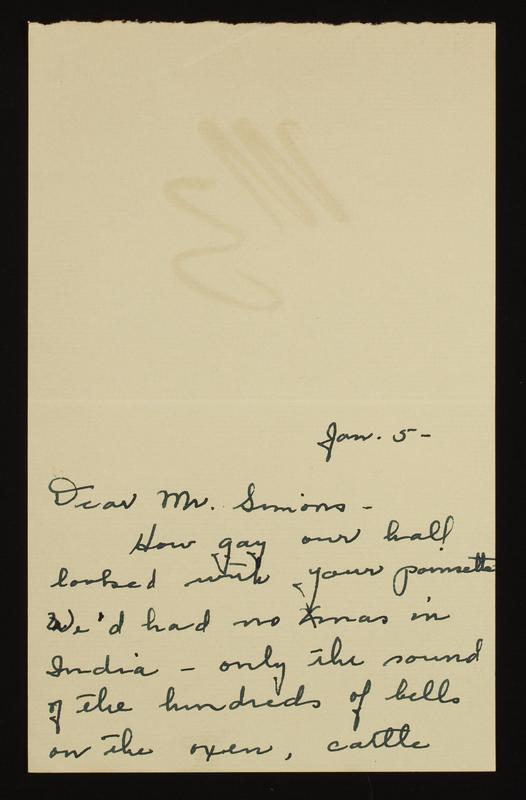 Jan. 5-
Dear Mr. Simons -
How gay our hall
looked with your poinsetta
We'd had no Xmas in
India - only the sound
of the hundreds of bells
on the oxen, cattle